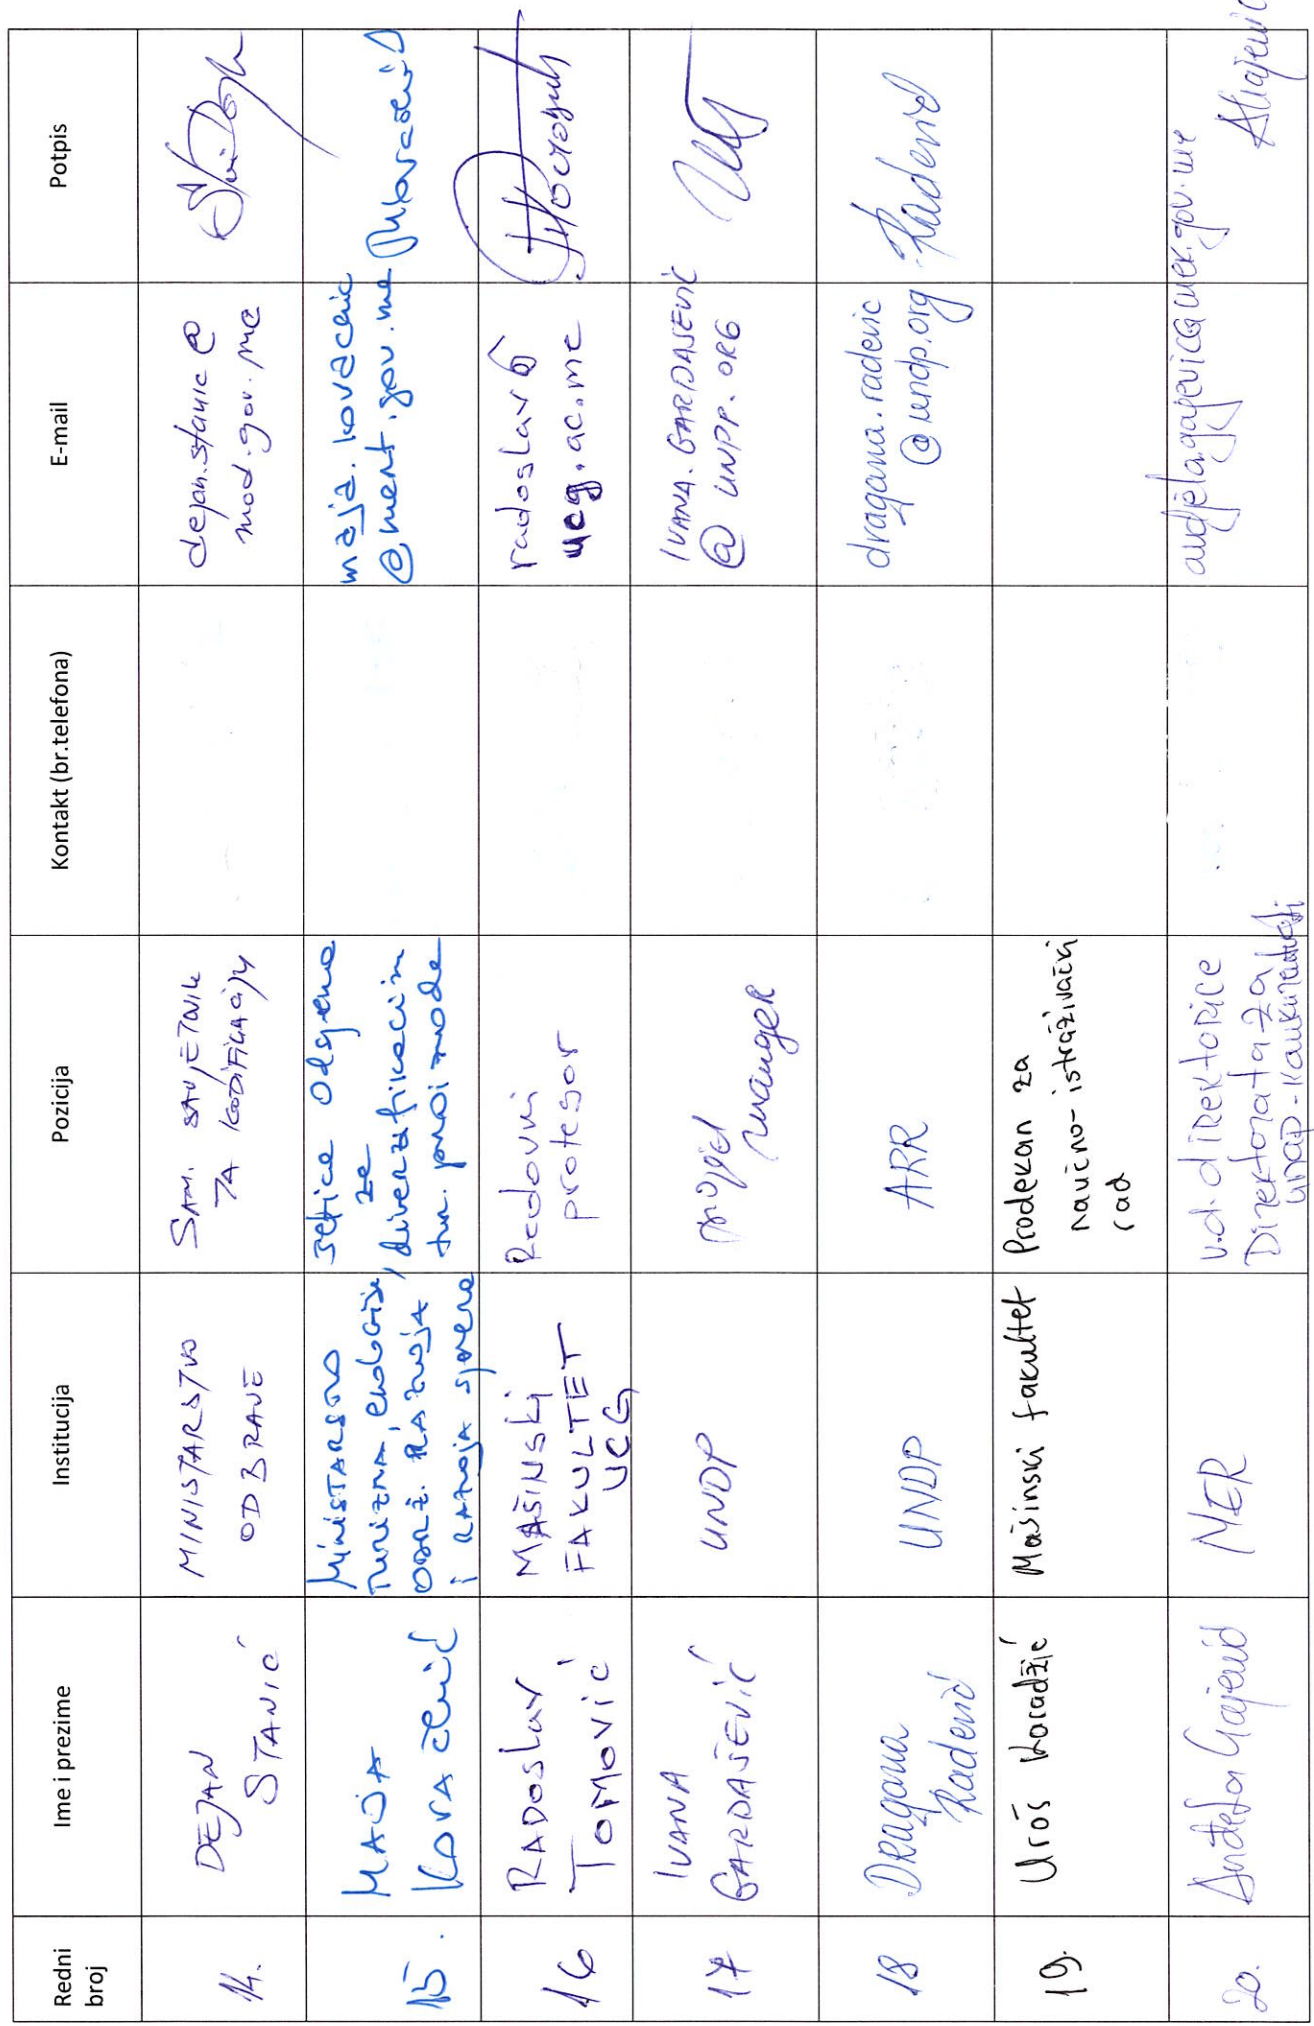 Redni broj
Ime i prezime
Institucija
Pozicija
Kontakt (br.telefona)
E-mail
Potpis
14.
DEJAN
STANIĆ
MINISTARSTVO
ODBRANE
SAM. SAVJETNIK
ZA KODIFIKACIJU
dejan.stanic@
mod.gov.me
15.
MAJA
Kovačević
MINISTARSTVO
TURIZMA, EKOLOGIJE,
ODRŽ. RAZVOJA
i RAZVOJA sjevera
za
diverzifikaciju
tur. proizvoda
@ment.gov.me
16
RADOSLAV
TOMOVIĆ
MAŠINSKI
FAKULTET
UCG
Redovni
profesor
radoslav@
ucg.ac.me
17
IVANA
GARDAŠEVIĆ
UNDP
project
manager
IVANA.GARDASEVIC
@UNDP.ORG
18
DRAGANA
Radević
UNDP
ARR
dragana.radevic
@undp.org
Radević
19.
Uroš Karadžić
Mašinski fakultet
Prodekan za
naučno-istraživački
rad
20.
Anđela Gajević
MER
v.d. direktorice
Direktorata za
andjela.gajevic@mek.gov.me
AGajević